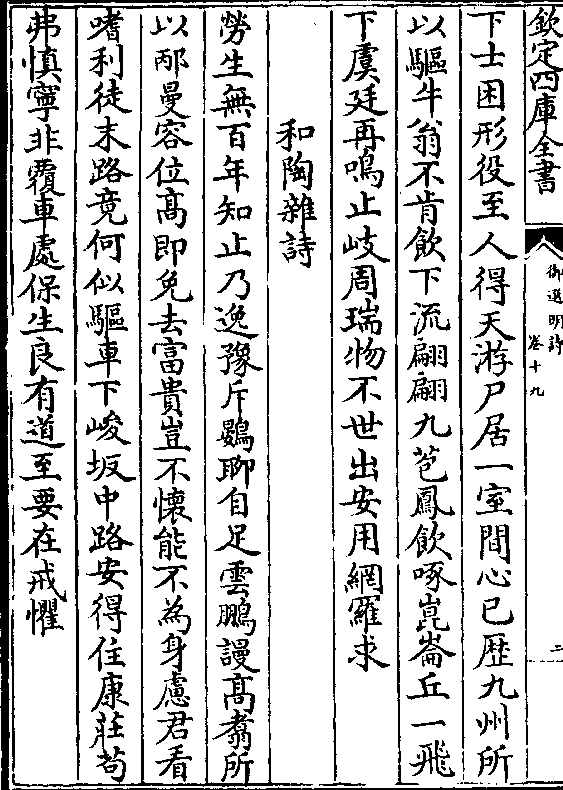 欽定四庫全書
御選明詩
卷十九
二
下士困形役至人得天游尸居一室間心已歴九州所
以驅牛翁不肯飲下流翩翩九苞鳳飲啄崑崙丘一飛
下虞廷再鳴止岐周瑞物不世出安用網羅求
和陶雜詩
勞生無百年知止乃逸豫斥鷃聊自足雲鵬謾髙翥所
以邴曼容位髙即免去富貴豈不懷能不為身慮君看
嗜利徒末路竟何似驅車下峻坂中路安得住康莊茍
弗慎寧非覆車處保生良有道至要在戒懼